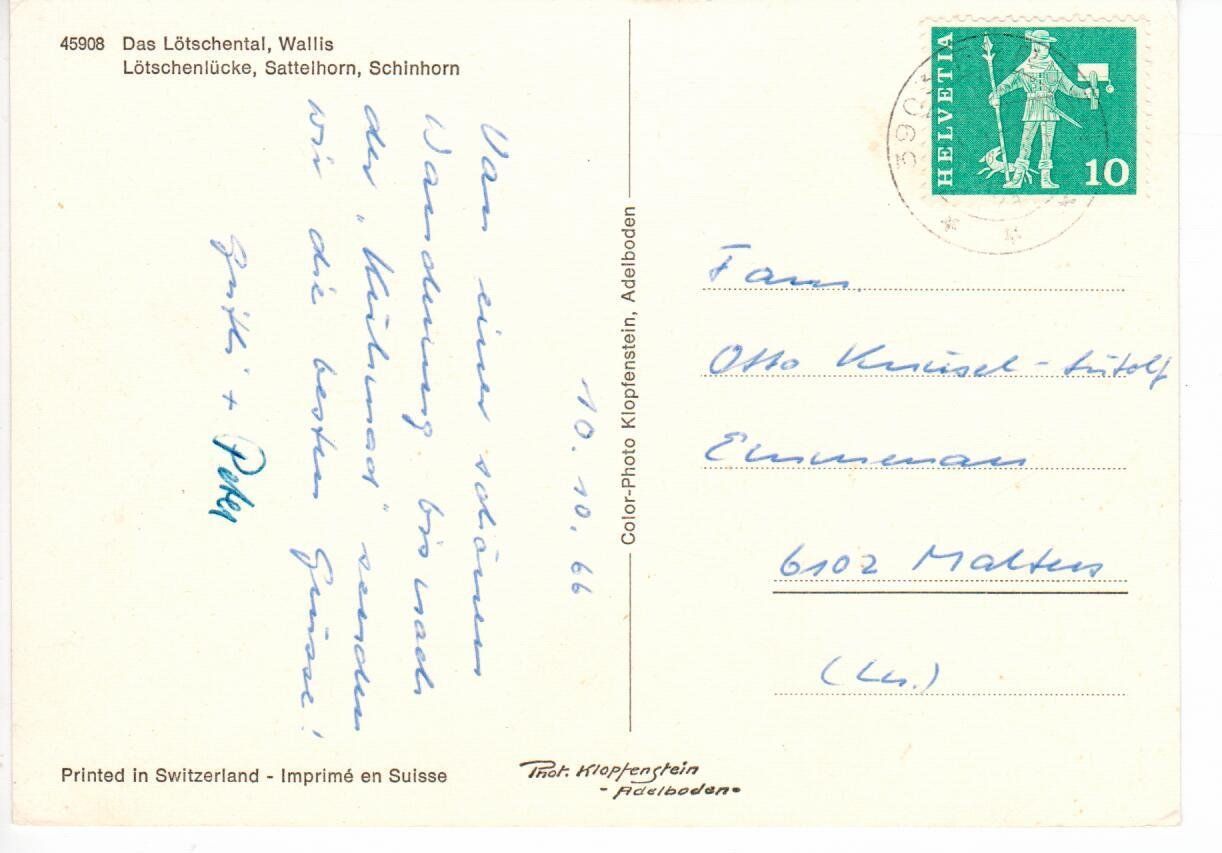 45908 Das Lötschental, Wallis
Lötschenlücke, Sattelhorn, Schinhorn
10.10.66
Von einer schönen
Wanderung bis nach
der „Kühmad" senden
wir die besten Grüsse!
+ Peter
Color-Photo Klopfenstein, Adelboden
HELVETIA
10
3903
Fam.
Otto Knüsel-
Emmenau
6102 Malters
(Lu.)
Printed in Switzerland - Imprimé en Suisse
Phot. Klopfenstein
- Adelboden -